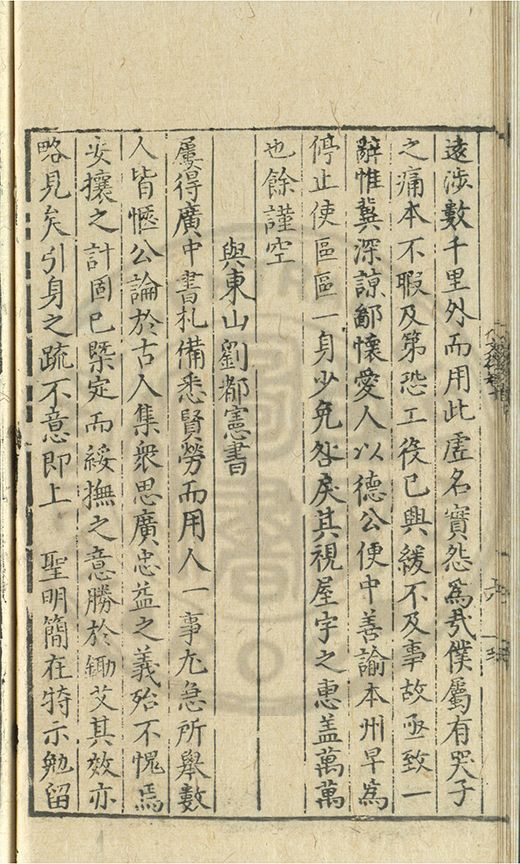 遠涉數千里外而用此虛名實怨爲哉僕屬有哭子
之痛本不暇及第恐工役已興緩不及事故亟致一
辭惟冀深諒鄙懷愛人以德公便中善諭本州早爲
停止使區區一身少免咎戾其視屋宇之惠盖萬萬
也餘謹空
與東山劉都憲書
屢得廣中書札備悉賢勞而用人一事尤急所舉數
人皆愜公論於古人集衆思廣忠益之義殆不愧焉
安攘之計固已槩定而綏撫之意勝於鋤艾其效亦
略見矣引身之疏不意即上 聖明簡在特示勉留